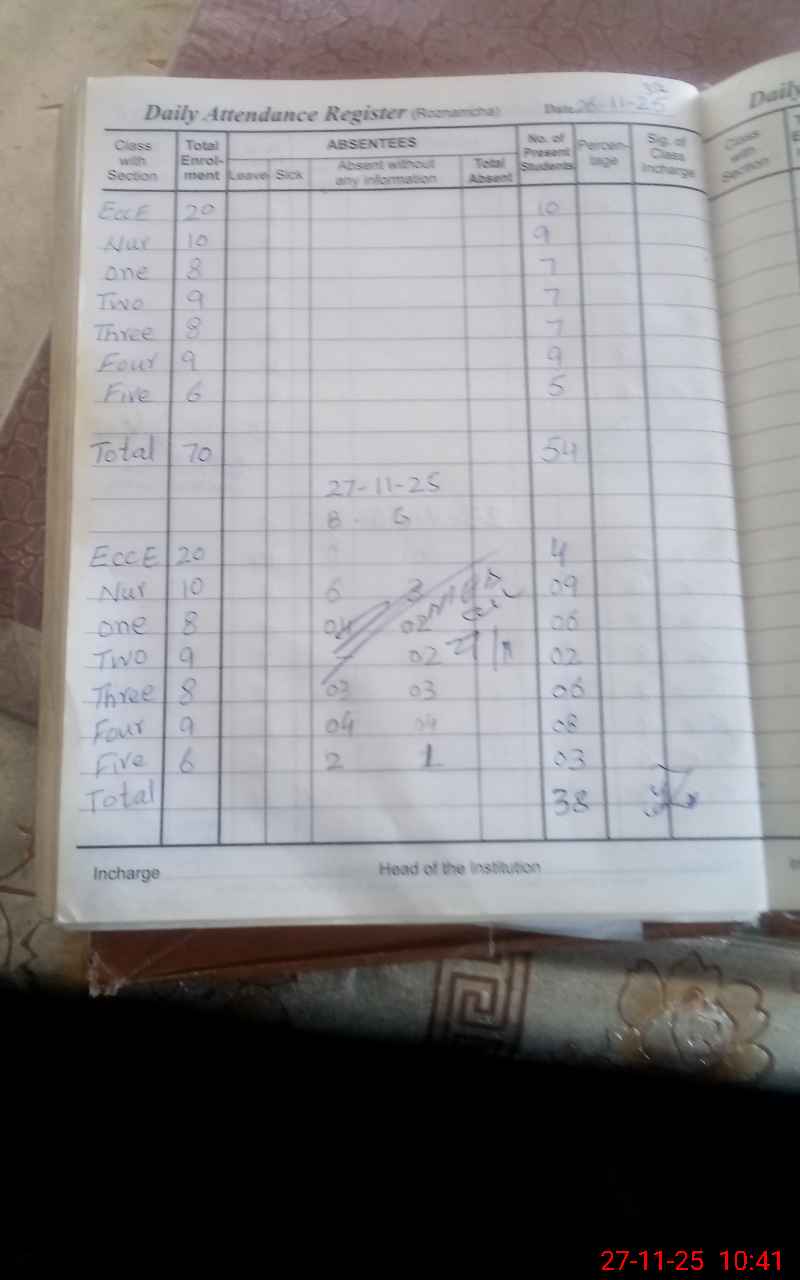 Daily Attendance Register (Roznamcha) Date 26-11-25
Class with Section Total Enrol-ment ABSENTEES No. of Present Students Percen-tage Sig. of Class Incharge
Leave Sick Absent without any information Total Absent
EccE 20 10
Nur 10 9
One 8 7
Two 9 7
Three 8 7
Four 9 9
Five 6 5
Total 70 54
27-11-25
B G
EccE 20 4
Nur 10 6 3 09
One 8 04 02 06
Two 9 02 02
Three 8 03 03 06
Four 9 04 04 08
Five 6 2 1 03
Total 38
Incharge Head of the Institution
Daily
Class with Section
27-11-25 10:41